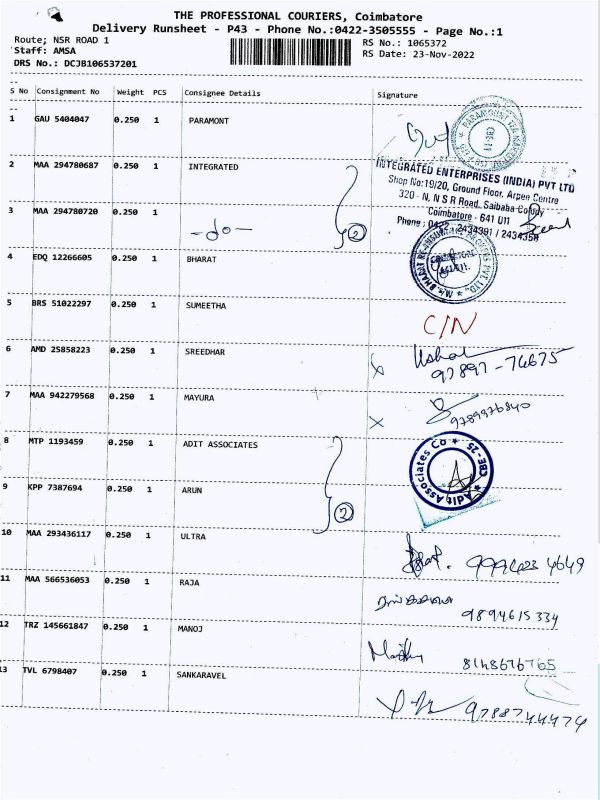 THE PROFESSIONAL COURIERS, Coimbatore
Delivery Runsheet - P43 - Phone No.:0422-3505555 - Page No.:1
Route; NSR ROAD 1
RS No.: 1065372
Staff: AMSA
RS Date: 23-Nov-2022
DRS No.: DCJB106537201
S No Consignment No Weight PCS Consignee Details Signature
1 GAU 5404047 0.250 1 PARAMONT
2 MAA 294780687 0.250 1 INTEGRATED
INTEGRATED ENTERPRISES (INDIA) PVT LTD
Shop No:19/20, Ground Floor, Arpee Centre
320 - N, N S R Road, Saibaba Colony
Coimbatore - 641 011
Phone : 0422 - 2434391 / 2434358
3 MAA 294780720 0.250 1 -do- 2
4 EDQ 12266605 0.250 1 BHARAT
5 BRS 51022297 0.250 1 SUMEETHA C/N
6 AMD 25858223 0.250 1 SREEDHAR x Usha 97897-74675
7 MAA 942279568 0.250 1 MAYURA x 9789976840
8 MTP 1193459 0.250 1 ADIT ASSOCIATES
Adit Associates Co ★ CBE-25
9 KPP 7387694 0.250 1 ARUN 2
10 MAA 293436117 0.250 1 ULTRA 9994234649
11 MAA 566536053 0.250 1 RAJA 9894615334
12 TRZ 145661847 0.250 1 MANOJ 8148676765
13 TVL 6798407 0.250 1 SANKARAVEL 9788744474